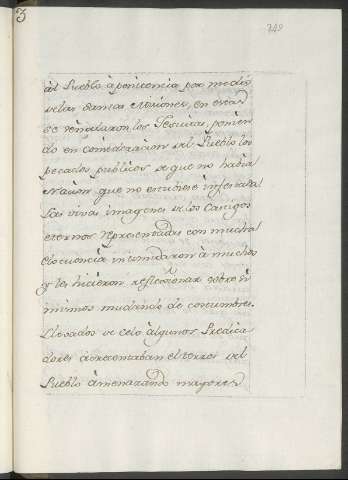 3
749
àl Pueblo à penitencia por medio
de las Santas Misiones, en estas
se señalaron los Jesuitas, ponien
do en consideracion del Pueblo los
pecados publicos de que no havia
Nacion que no estubiese infestada
Las vivas imagenes de los Castigos
eternos representadas con mucha
eloquencia intimidaron à muchos
y les hicieron reflessionar sobre si
mismos mudando de costumbres.
Llevados de celo àlgunos Predica
dores àcrecentaban el terror del
Pueblo àmenazando mayores